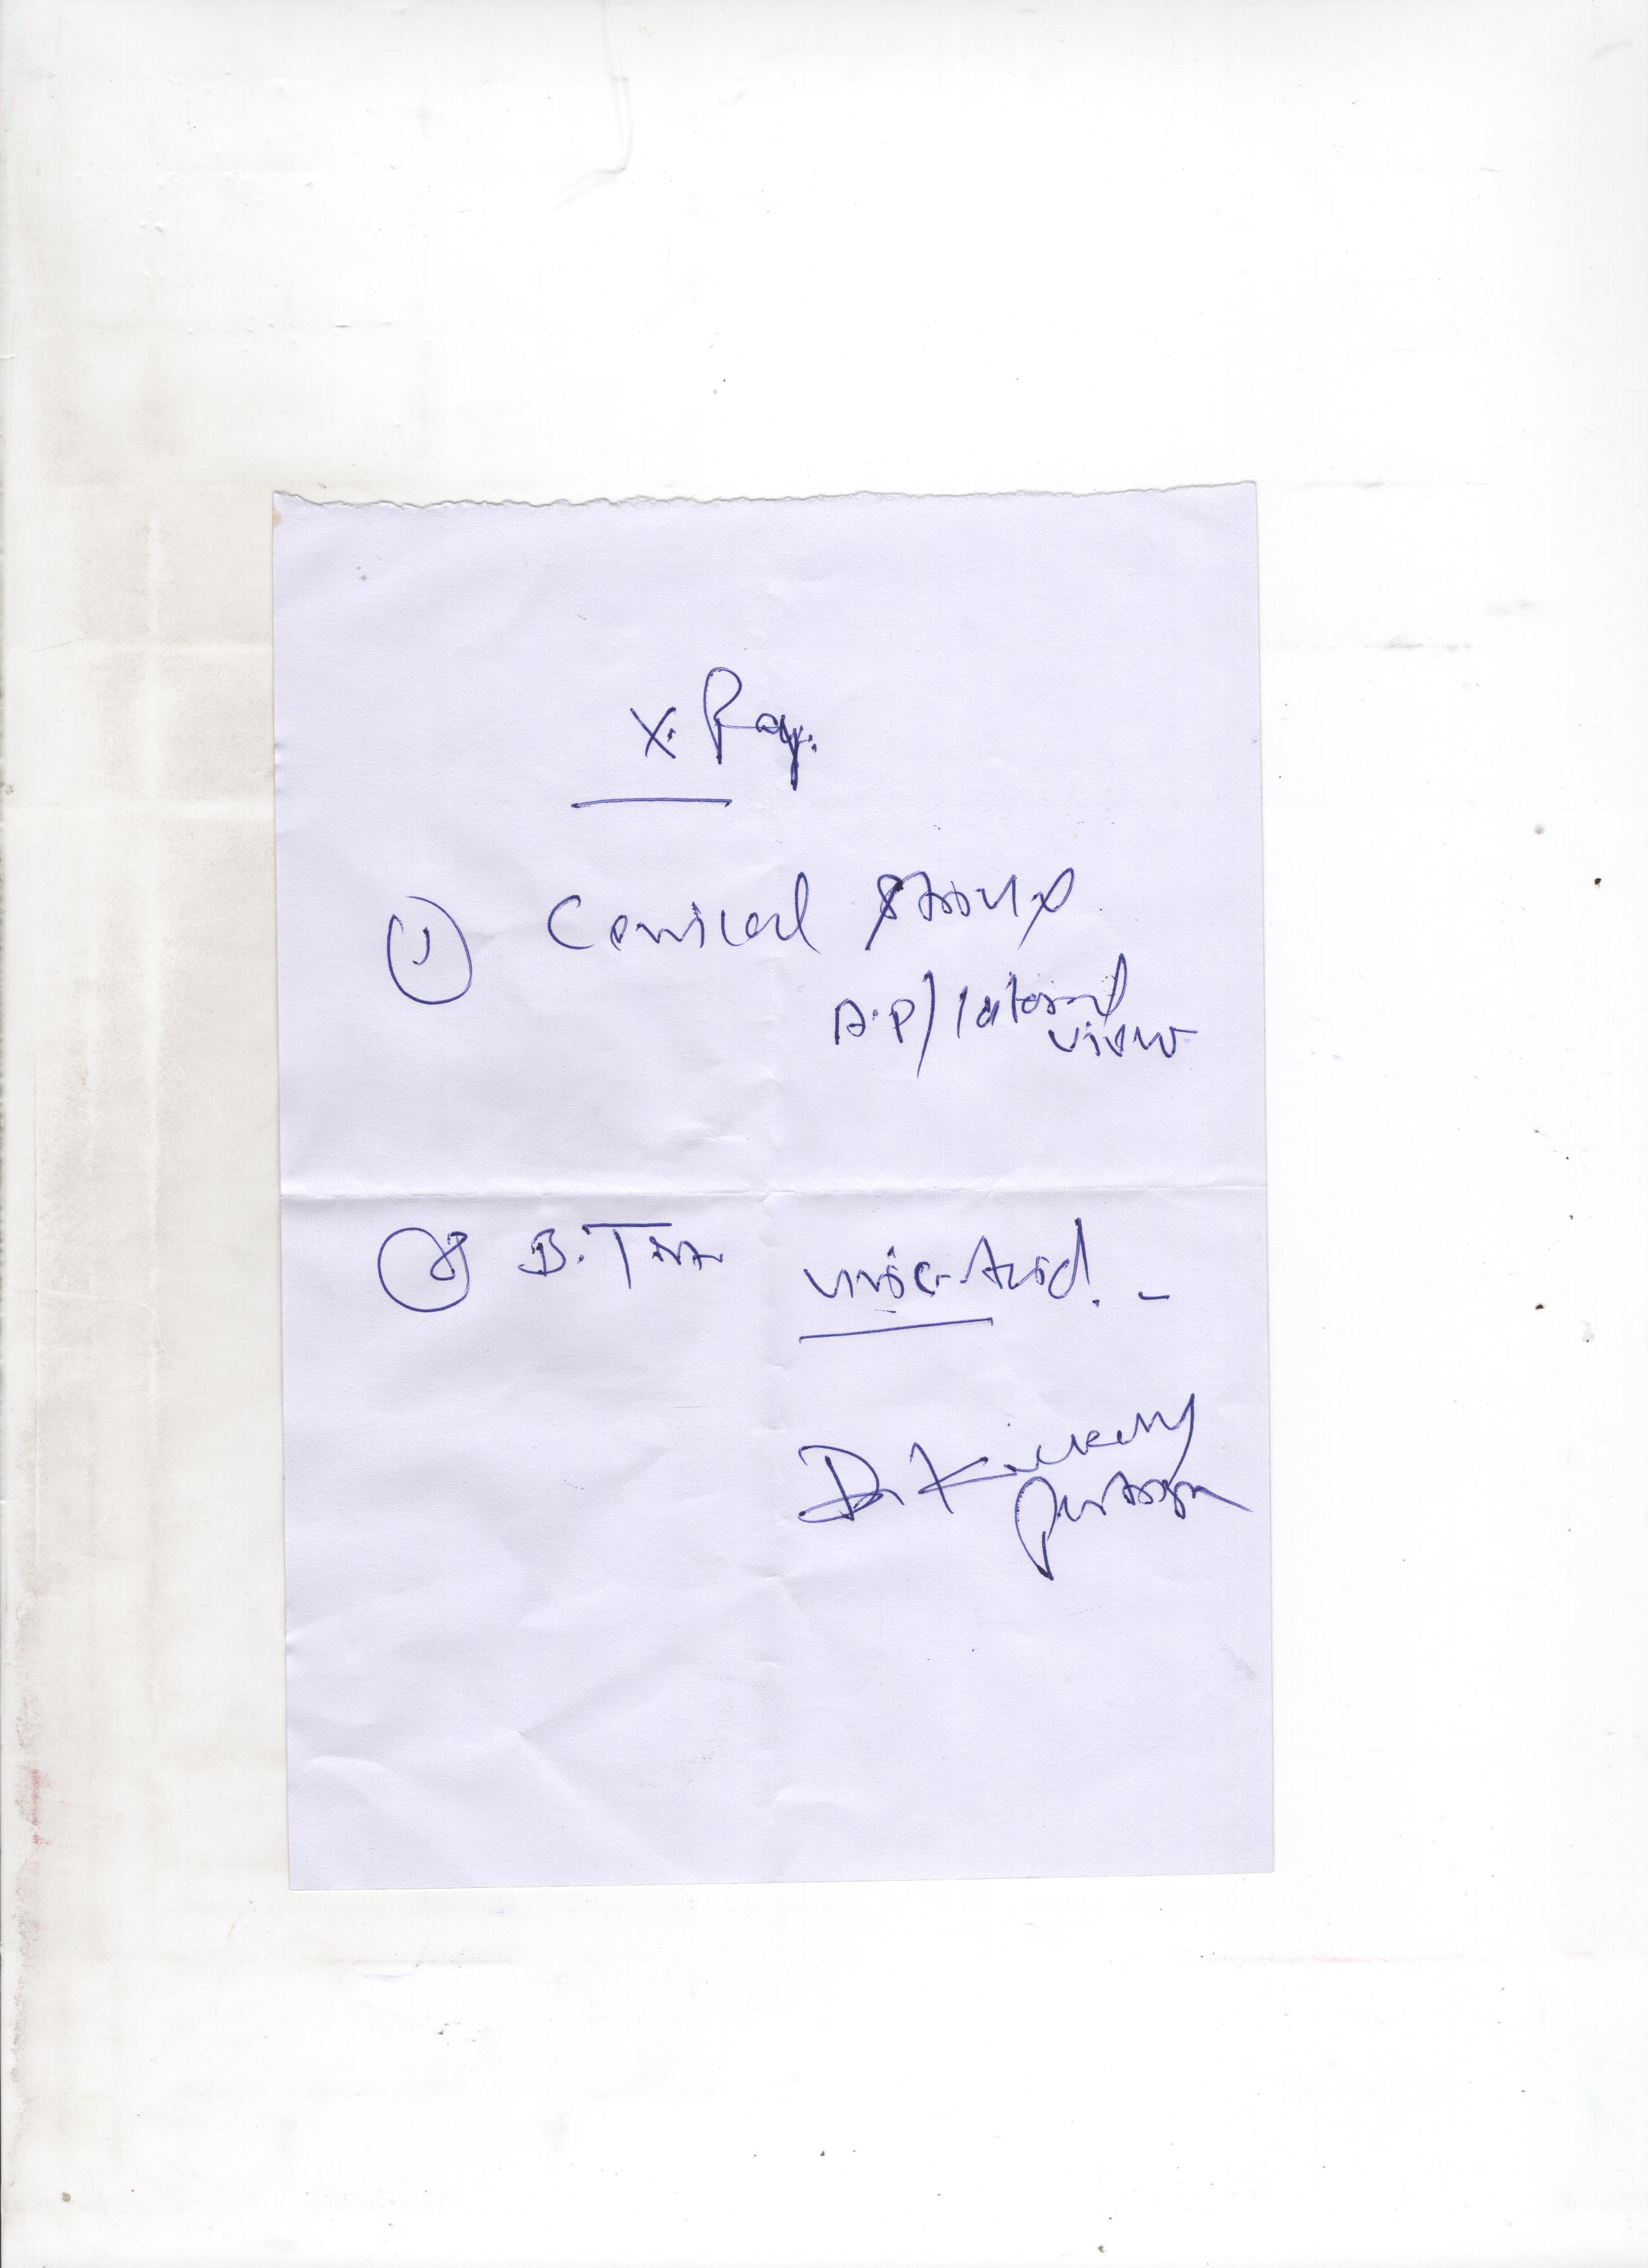 X. Ray.
① Cervical spine
A.P/lateral
view
② B. Test Uric-Acid. -
Dr.